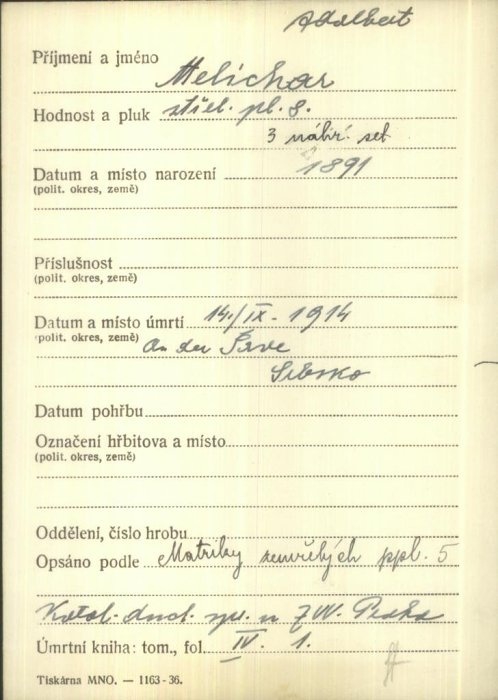 Adalbert
Příjmení a jméno Melichar
Hodnost a pluk střel. pl. 8.
3 náhr. set
Datum a místo narození 1891
(polit. okres, země)
Příslušnost
(polit. okres, země)
Datum a místo úmrtí 14./IX. 1914
(polit. okres, země) An der Save
Srbsko
Datum pohřbu
Označení hřbitova a místo
(polit. okres, země)
Oddělení, číslo hrobu
Opsáno podle Matriky zemřelých ppl. 5
Katol. duch. spr. u ZVV. Praha
Úmrtní kniha: tom., fol. IV. 1.
Tiskárna MNO. — 1163-36.